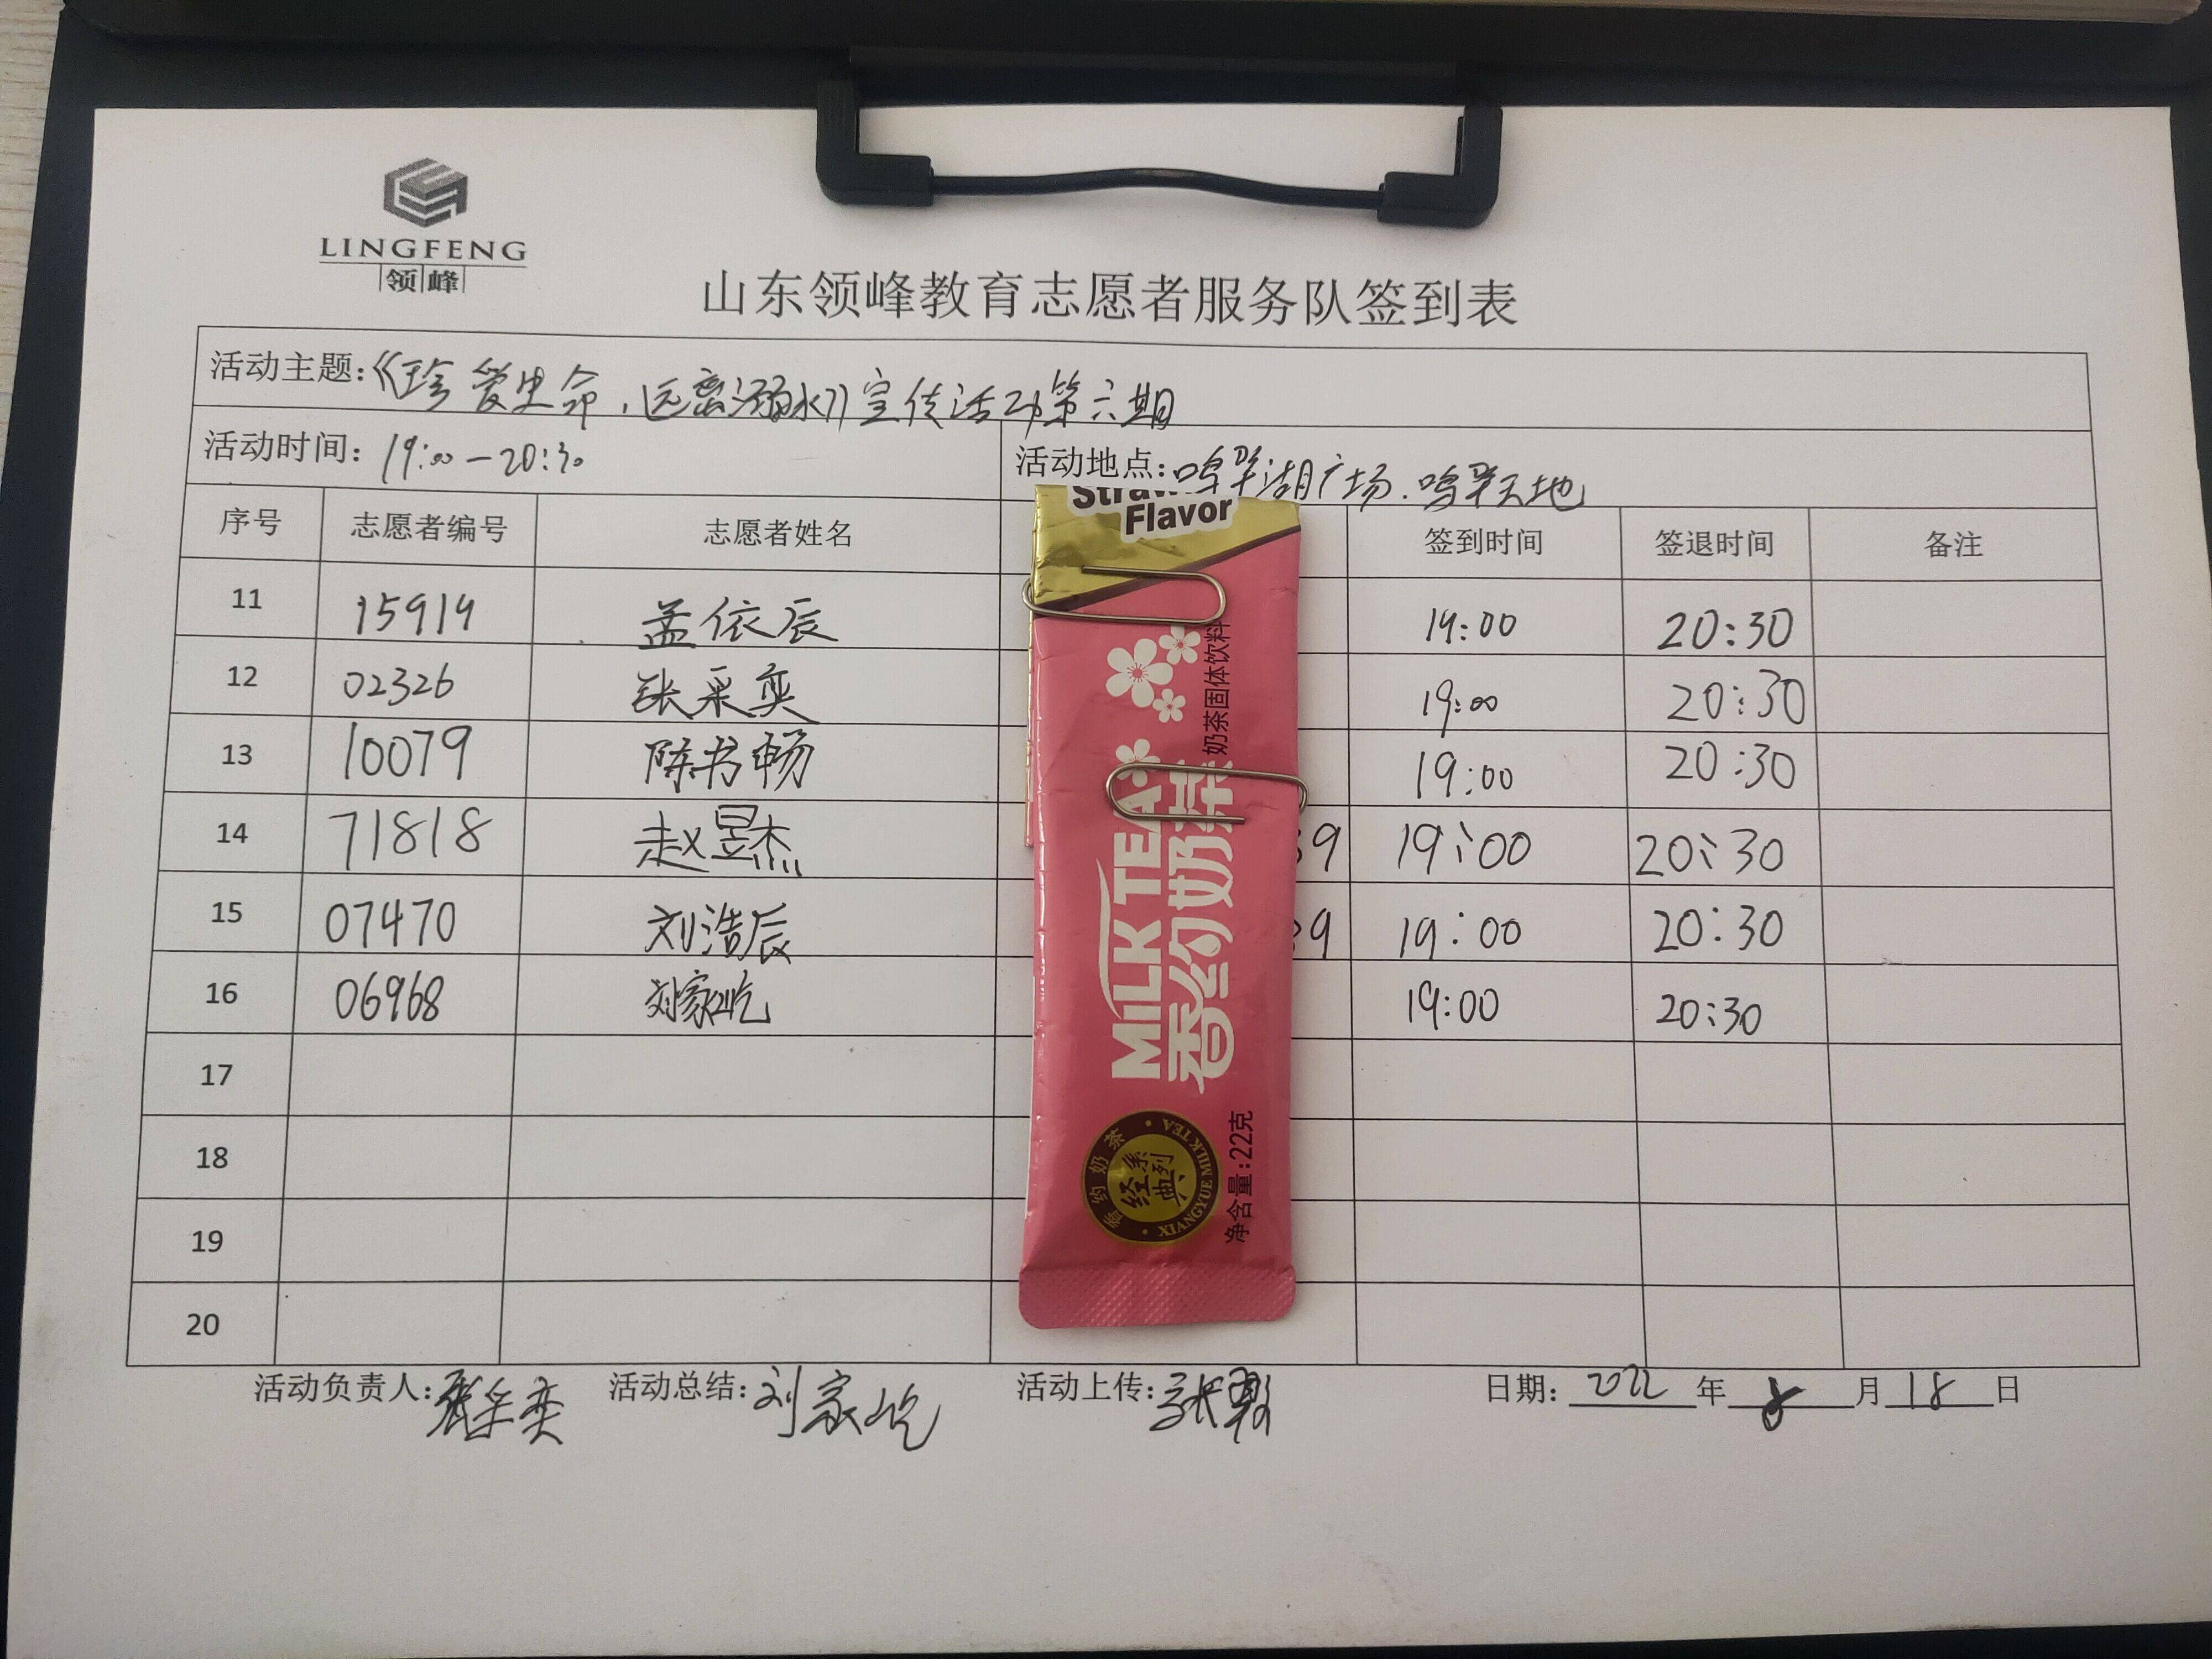 LINGFENG
领峰
山东领峰教育志愿者服务队签到表
活动主题:《珍爱生命,远离溺水》宣传活动第六期
活动时间: 19:00—20:30 活动地点: 鸣翠湖广场.鸣翠天地
序号 志愿者编号 志愿者姓名 签到时间 签退时间 备注
11 15919 孟依辰 19:00 20:30
12 02326 张采奕 19:00 20:30
13 10079 陈书畅 19:00 20:30
14 71818 赵昱杰 9 19:00 20:30
15 07470 刘浩辰 9 19:00 20:30
16 06968 刘家屹 19:00 20:30
17
18
19
20
活动负责人: 张采奕 活动总结: 刘家屹 活动上传: 张 日期: 2022 年 8 月 18 日
Flavor
奶茶固体饮料
MILK TEA
香约奶茶
香约奶茶 · XIANGYUE MILK TEA ·
经典系列
净含量:22克